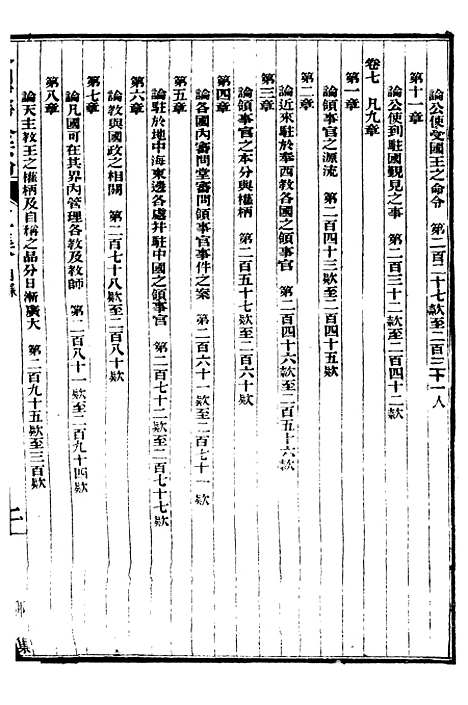 論公使受國王之命令　第二百二十七款至二百三十一人
第十一章
論公使到駐國觀見之事　第二百三十二款至二百四十二款
卷七　凡九章
第一章
論領事官之源流　第二百四十三款至二百四十五款
第二章
論近來駐於奉西教各國之領事官　第二百四十六款至二百五十六款
第三章
論領事官之本分與權柄　第二百五十七款至二百六十款
第四章
論各國內審問堂審問領事官事件之案　第二百六十一款至二百七十一款
第五章
論駐於地中海東邊各處并駐中國之領事官　第二百七十二款至二百七十七款
第六章
論教與國政之相關　第二百七十八款至二百八十款
第七章
論凡國可在其界內管理各教及教師　第二百八十一款至二百九十四款
第八章
論天主教王之權柄及自稱之品分日漸廣大　第二百九十五款至三百款
二
集